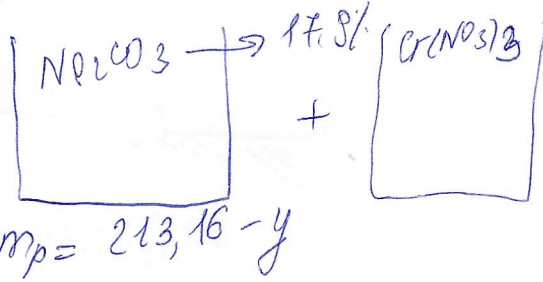 Na2CO3 → 17.9% Cr(NO3)3
+
mp = 213,16 - y